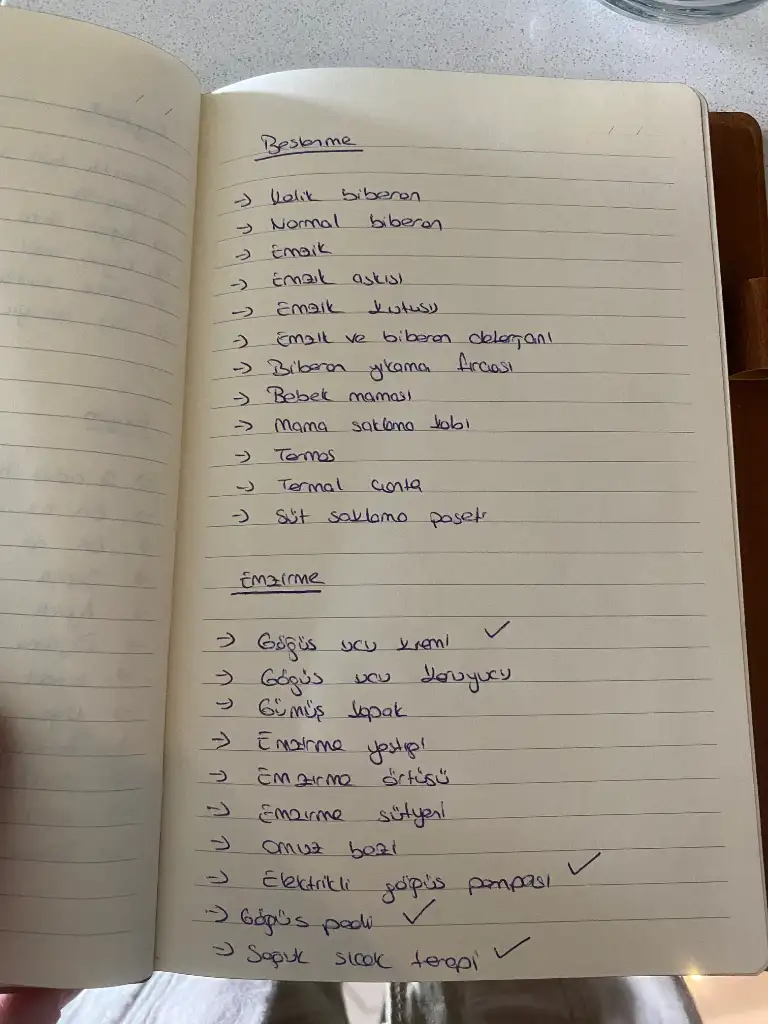 Beslenme
→ Kolik biberon
→ Normal biberon
→ Emzik
→ Emzik askısı
→ Emzik kutusu
→ Emzik ve biberon deterjanı
→ Biberon yıkama fırçası
→ Bebek maması
→ Mama saklama kabı
→ Termos
→ Termal çanta
→ Süt saklama poşeti
Emzirme
→ Göğüs ucu kremi ✓
→ Göğüs ucu koruyucu
→ Gümüş kapak
→ Emzirme yastığı
→ Emzirme örtüsü
→ Emzirme sütyeni
→ Omuz bezi
→ Elektrikli göğüs pompası ✓
→ Göğüs pedi ✓
→ Soğuk sıcak terapi ✓